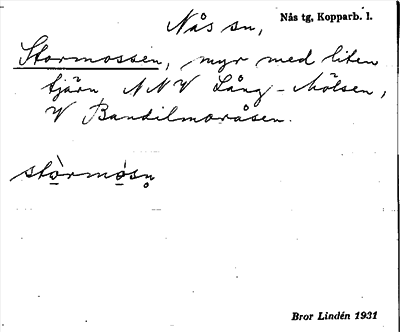 Nås sn, Nås tg, Kopparb. l.
Stormossen, myr med liten
tjärn NNV Lång-Mölsen,
V Bandilmoråsen.
stòrmósn̥
Bror Lindén 1931